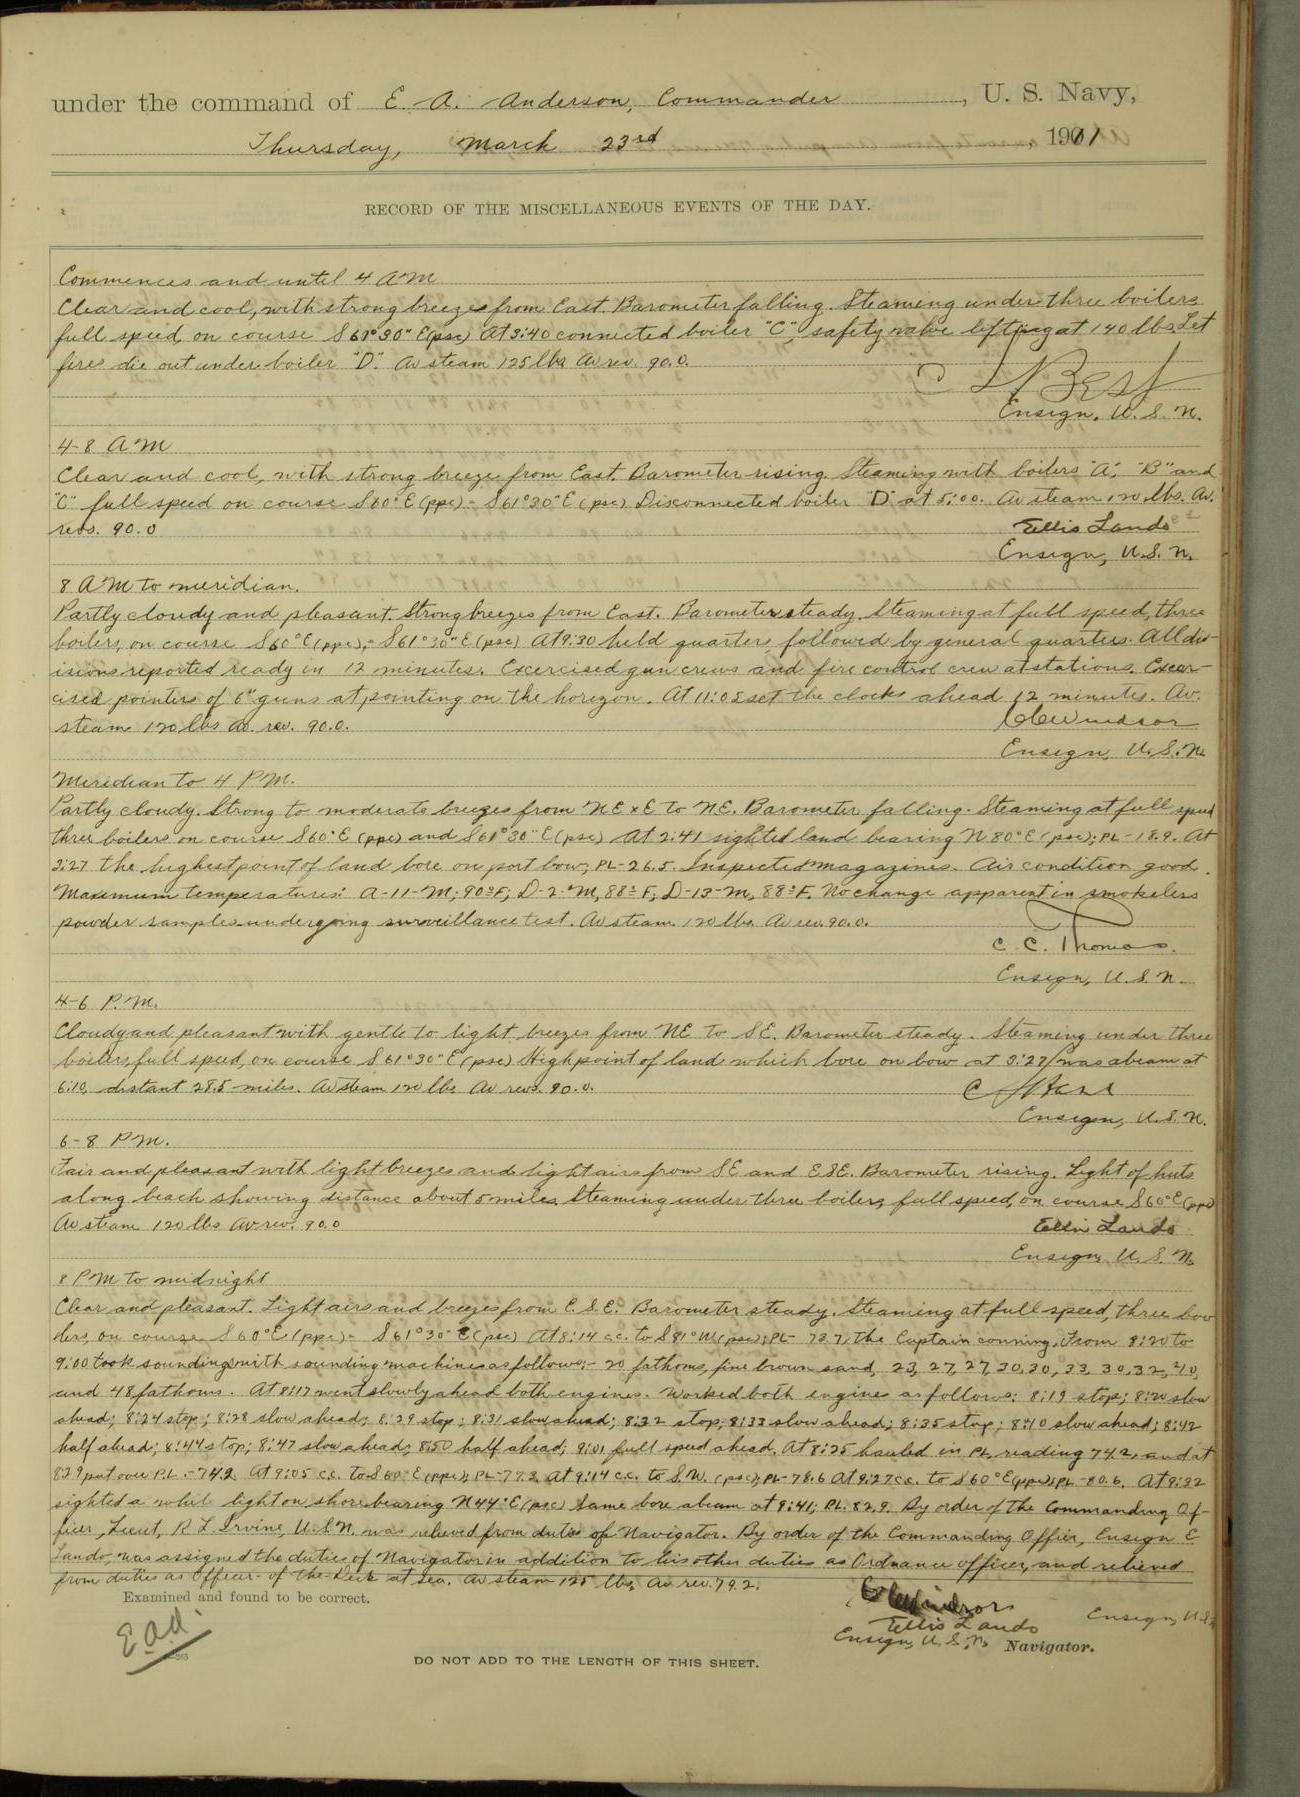 under the command of E. A. Anderson, Commander, U. S. Navy,
Thursday, March 23rd, 1911
RECORD OF THE MISCELLANEOUS EVENTS OF THE DAY.
Commences and until 4 A M
Clear and cool, with strong breezes from East. Barometer falling. Steaming under three boilers
full speed, on course S 61°30" E (psc) At 3:40 connected boiler "C", safety valve lifting at 140 lbs. Let
fires die out under boiler "D". Av steam 125 lbs Av rev. 90.0.
Ensign, U. S. N.
4-8 A M
Clear and cool, with strong breeze from East. Barometer rising. Steaming with boilers "A", "B" and
"C" full speed on course S60°E (ppc) = S61°30"E (psc) Disconnected boiler "D" at 5:00. Av steam 120 lbs. Av.
revs. 90.0
Ellis Lando
Ensign, U. S. N.
8 A M to meridian.
Partly cloudy and pleasant. Strong breezes from East. Barometer steady. Steaming at full speed, three
boilers, on course S60°E (ppc) = S61°30"E (psc) At 9:30 held quarters, followed by general quarters. All div-
isions reported ready in 12 minutes. Excercised gun crews and fire control crew at stations. Excer-
cised pointers of 6" guns at pointing on the horizon. At 11:05 set the clocks ahead 12 minutes. Av.
steam 120 lbs av. rev. 90.0.
CCWindsor
Ensign, U. S. N.
Meridian to 4 P M.
Partly cloudy. Strong to moderate breezes from NE x E to NE. Barometer falling. Steaming at full speed
three boilers on course S60°E (ppc) and S61°30"E (psc) At 2:41 sighted land bearing N 80°E (psc); PL-18.9. At
3:27 the highest point of land bore on port bow; PL-26.5. Inspected magazines. Air condition good.
Maximum temperatures: A-11-M, 90°F; D-2-M, 88°F; D-13-M, 88°F. No change apparent in smokeless
powder samples undergoing surveillance test. Av steam 120 lbs. Av rev. 90.0.
C. C. Thomas.
Ensign, U. S. N.
4-6 P. M.
Cloudy and pleasant with gentle to light breezes from NE to SE. Barometer steady. Steaming under three
boilers, full speed, on course S 61°30"E (psc) High point of land which bore on bow at 3:27, was abeam at
6:10, distant 28.5 miles. Av steam 120 lbs Av revs. 90.0.
Ensign, U. S. N.
6-8 P M.
Fair and pleasant with light breezes and light airs from SE and ESE. Barometer rising. Light of huts
along beach showing distance about 5 miles. Steaming under three boilers, full speed, on course S60°E (ppc)
Av steam 120 lbs Av rev. 90.0
Ellis Lando
Ensign, U. S. N.
8 P M to midnight
Clear and pleasant. Light airs and breezes from E. S. E. Barometer steady. Steaming at full speed, three boi-
lers, on course S60°E (ppc) = S61°30"E (psc) At 8:14 c.c. to S 81°W (psc); PL- 73.7, the Captain conning. From 8:20 to
9:00 took soundings with sounding machine as follows:- 20 fathoms, fine brown sand, 23, 27, 27, 30, 30, 33, 30, 32, 40,
and 48 fathoms. At 8:17 went slowly ahead both engines. Worked both engines as follows: 8:19 stop; 8:20 slow
ahead; 8:24 stop; 8:28 slow ahead; 8:29 stop; 8:31 slow ahead; 8:32 stop; 8:33 slow ahead; 8:35 stop; 8:40 slow ahead; 8:42
half ahead; 8:44 stop; 8:47 slow ahead; 8:50 half ahead; 9:01 full speed ahead. At 8:25 hauled in PL, reading 74.2, and at
8:29 put over PL.-74.2. At 9:05 c.c. to S60°E (ppc); PL-77.3. At 9:14 c.c. to S.W. (psc); PL-78.6 At 9:27 c.c. to S60°E (ppc); PL-80.6. At 9:32
sighted a white light on shore bearing N44°E (psc) Same bore abeam at 9:41; PL. 82.9. By order of the Commanding Of-
ficer, Lieut. R L Irvine, U. S. N. was relieved from duties of Navigator. By order of the Commanding Officer, Ensign E
Lando, was assigned the duties of Navigator in addition to his other duties as Ordnance officer, and relieved
from duties as Officer-of-the-Deck at sea. Av steam 125 lbs, Av rev. 79.2.
Examined and found to be correct.
CCWindsor
Ensign, U. S. N.
Ellis Lando
Ensign, U. S. N. Navigator.
DO NOT ADD TO THE LENGTH OF THIS SHEET.